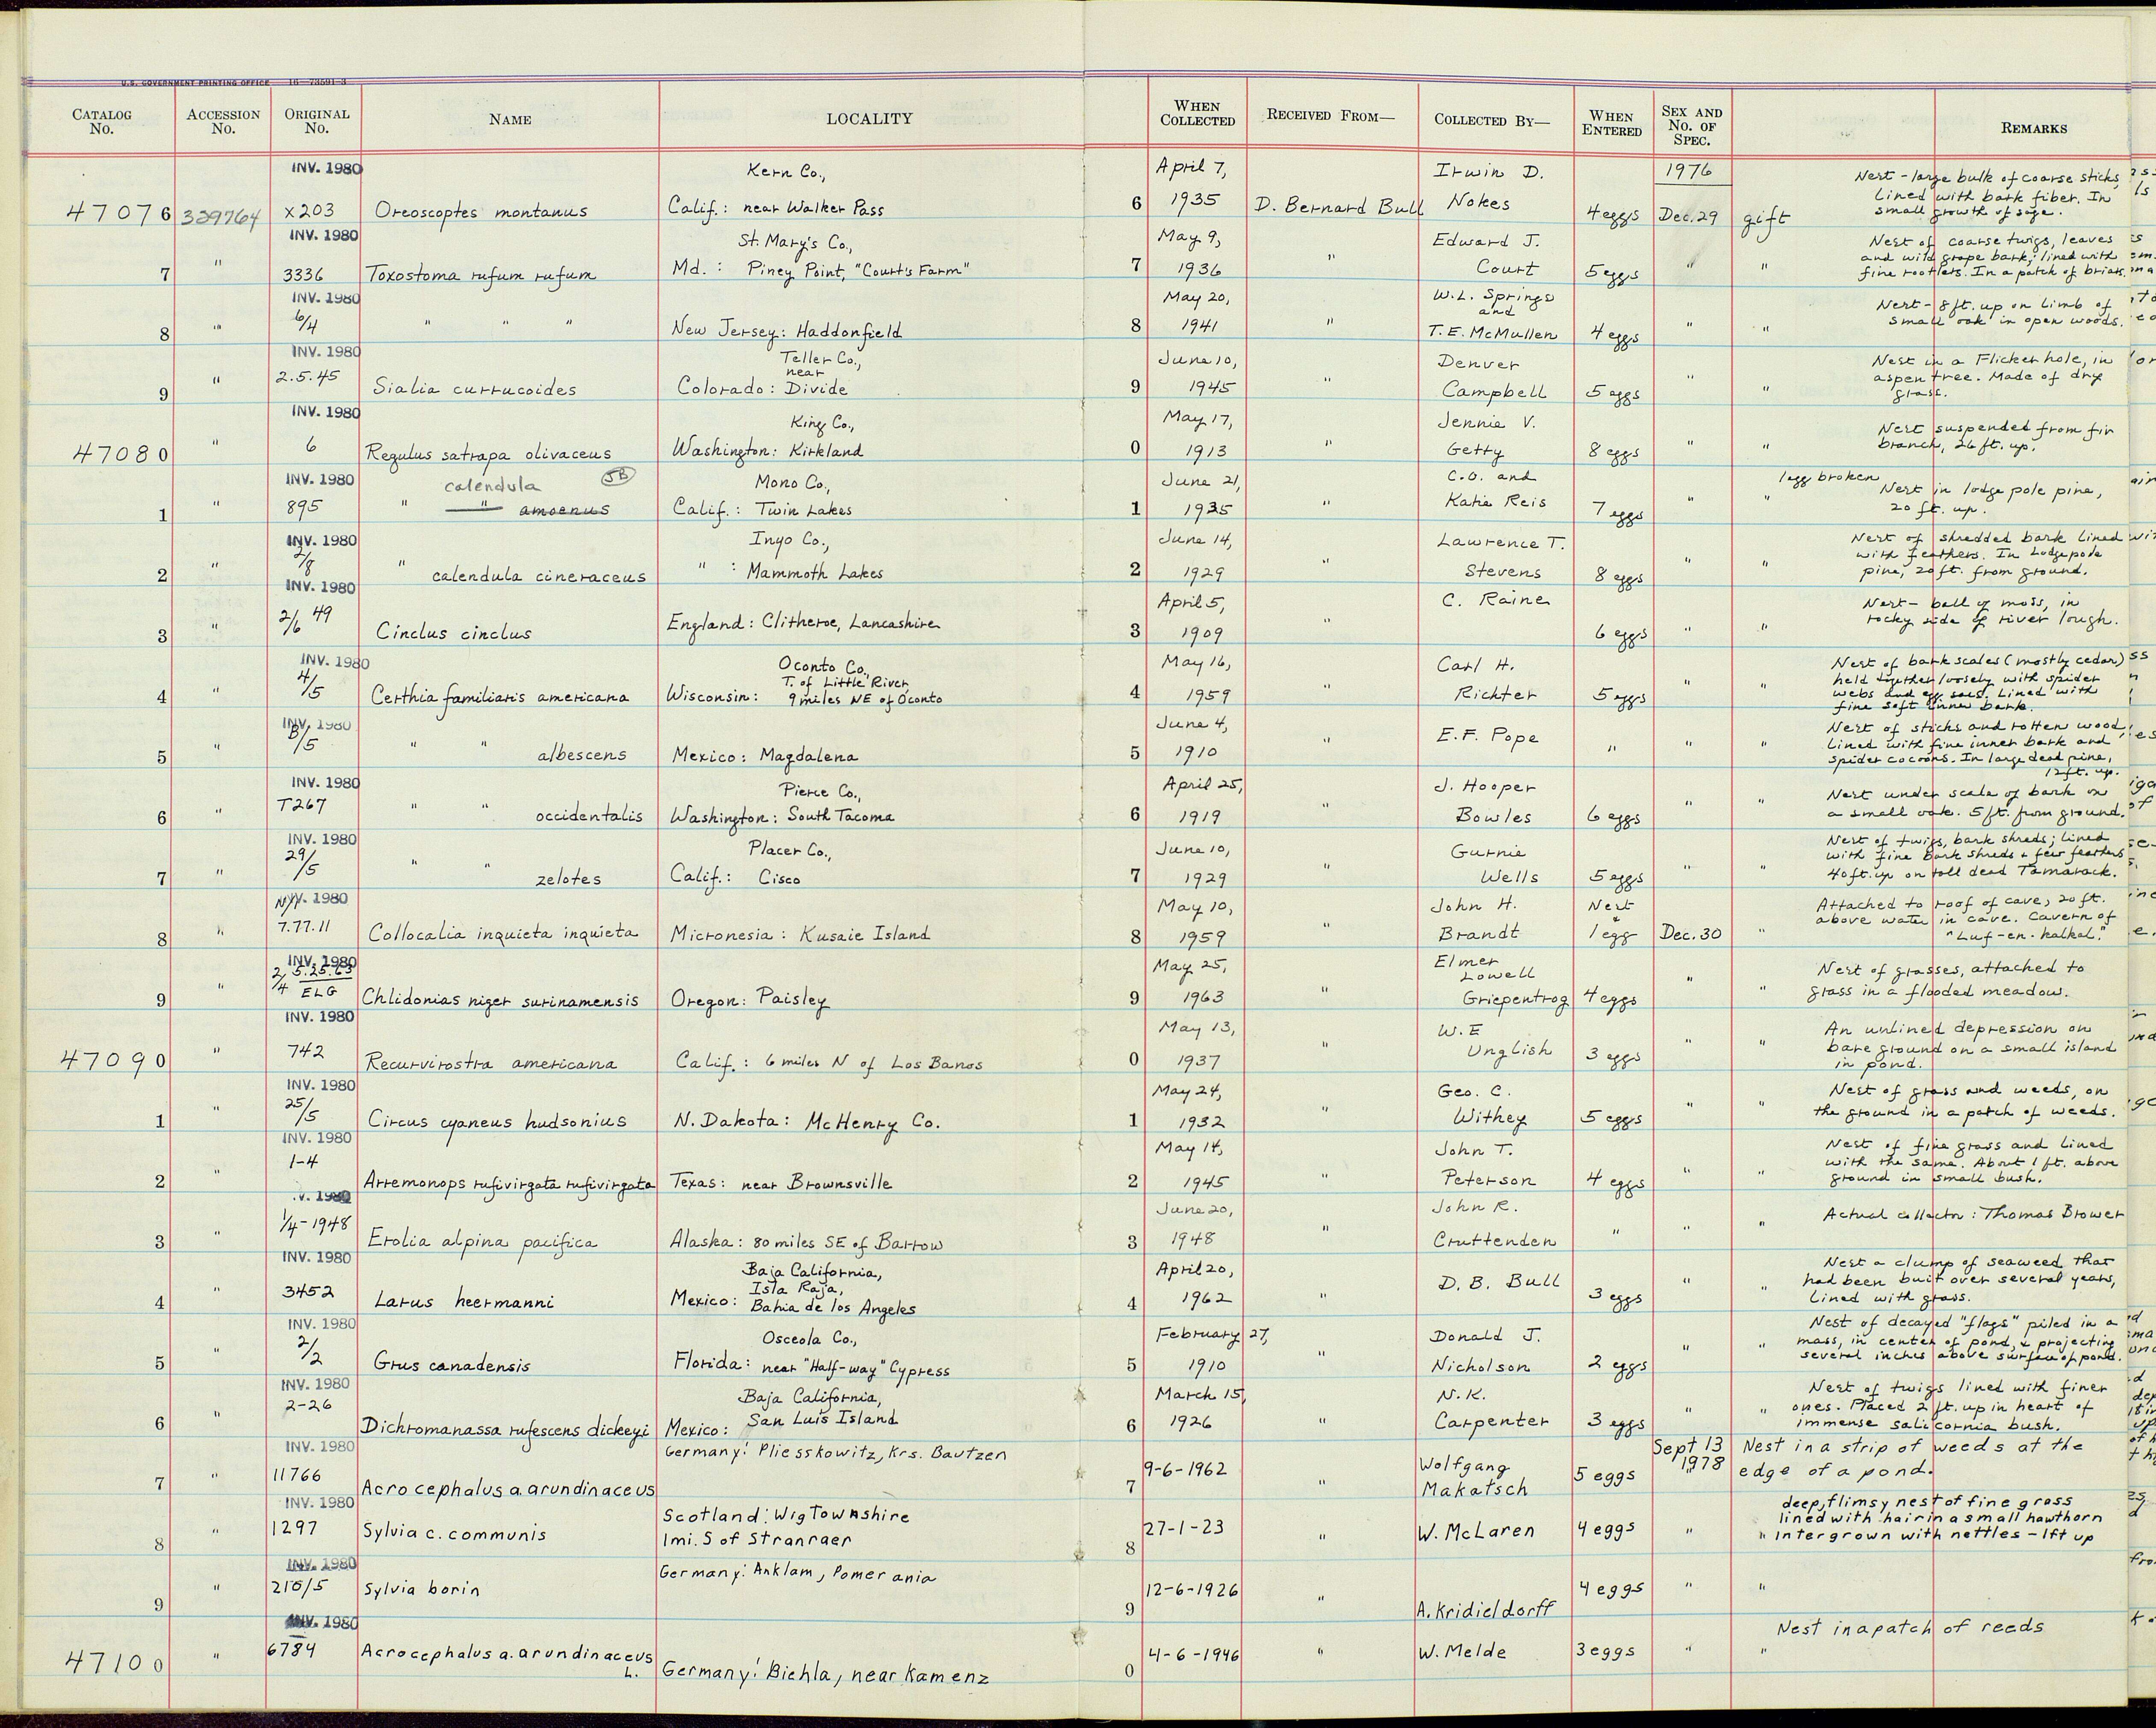 U.S. GOVERNMENT PRINTING OFFICE 16—73591-3
CATALOG No. ACCESSION No. ORIGINAL No. NAME LOCALITY WHEN COLLECTED RECEIVED FROM— COLLECTED BY— WHEN ENTERED SEX AND No. OF SPEC. REMARKS
INV. 1980 Kern Co., April 7, Irwin D. 1976 Nest - large bulk of coarse sticks,
47076 329764 X203 Oreoscoptes montanus Calif.: near Walker Pass 6 1935 D. Bernard Bull Nokes 4 eggs Dec. 29 gift Lined with bark fiber. In
small growth of sage.
INV. 1980 St. Mary's Co., May 9, Edward J. Nest of coarse twigs, leaves
7 " 3336 Toxostoma rufum rufum Md.: Piney Point, "Court's Farm" 7 1936 " Court 5 eggs " " and wild grape bark; lined with
fine rootlets. In a patch of briars.
INV. 1980 May 20, W.L. Springs and Nest - 8ft. up on limb of
8 " 6/4 " " " New Jersey: Haddonfield 8 1941 " T.E. McMullen 4 eggs " " small oak in open woods.
INV. 1980 Teller Co., June 10, Denver Nest in a Flicker hole, in
near aspen tree. Made of dry
9 " 2.5.45 Sialia currucoides Colorado: Divide 9 1945 " Campbell 5 eggs " " grass.
INV. 1980 King Co., May 17, Jennie V. Nest suspended from fir
47080 " 6 Regulus satrapa olivaceus Washington: Kirkland 0 1913 " Getty 8 eggs " " branch, 26 ft. up.
INV. 1980 calendula JB Mono Co., June 21, C.O. and 1 egg broken Nest in lodge pole pine,
1 " 895 " " amoenus Calif.: Twin Lakes 1 1935 " Katie Reis 7 eggs " " 20 ft. up.
INV. 1980 Inyo Co., June 14, Lawrence T. Nest of shredded bark lined
2 " 2/8 " calendula cineraceus " : Mammoth Lakes 2 1929 " Stevens 8 eggs " " with feathers. In Lodgepole
pine, 20 ft. from ground.
INV. 1980 April 5, C. Raine Nest - ball of moss, in
3 " 2/6 49 Cinclus cinclus England: Clitheroe, Lancashire 3 1909 " 6 eggs " " rocky side of river lough.
INV. 1980 Oconto Co., May 16, Carl H. Nest of bark scales (mostly cedar)
T. of Little River, held together loosely with spider
4 " 4/5 Certhia familiaris americana Wisconsin: 9 miles NE of Oconto 4 1959 " Richter 5 eggs " " webs and egg sacs. Lined with
fine soft inner bark.
INV. 1980 June 4, Nest of sticks and rotten wood,
5 " B/5 " " albescens Mexico: Magdalena 5 1910 " E.F. Pope " " " Lined with fine inner bark and
spider cocoons. In large dead pine,
12 ft. up.
INV. 1980 Pierce Co., April 25, J. Hooper Nest under scale of bark on
6 " T267 " " occidentalis Washington: South Tacoma 6 1919 " Bowles 6 eggs " " a small oak. 5 ft. from ground.
INV. 1980 Placer Co., June 10, Gurnie Nest of twigs, bark shreds; lined
7 " 29/5 " " zelotes Calif.: Cisco 7 1929 " Wells 5 eggs " " with fine bark shreds + few feathers
40 ft. up on tall dead Tamarack.
1980 May 10, John H. Nest Attached to roof of cave, 20 ft.
8 " 7.77.11 Collocalia inquieta inquieta Micronesia: Kusaie Island 8 1959 " Brandt + 1 egg Dec. 30 " above water in cave. Cavern of
"Luf-en-kalkal."
INV. 1980 May 25, Elmer Lowell Nest of grasses, attached to
9 " 2/4 5.25.63 ELG Chlidonias niger surinamensis Oregon: Paisley 9 1963 " Griepentrog 4 eggs " " grass in a flooded meadow.
INV. 1980 May 13, W.E An unlined depression on
47090 " 742 Recurvirostra americana Calif.: 6 miles N of Los Banos 0 1937 " Unglish 3 eggs " " bare ground on a small island
in pond.
INV. 1980 May 24, Geo. C. Nest of grass and weeds, on
1 " 25/5 Circus cyaneus hudsonius N. Dakota: McHenry Co. 1 1932 " Withey 5 eggs " " the ground in a patch of weeds.
INV. 1980 May 14, John T. Nest of fine grass and lined
2 " 1-4 Arremonops rufivirgata rufivirgata Texas: near Brownsville 2 1945 " Peterson 4 eggs " " with the same. About 1 ft. above
ground in small bush.
.V. 1980 June 20, John R.
3 " 1/4-1948 Erolia alpina pacifica Alaska: 80 miles SE of Barrow 3 1948 " Cruttenden " " " Actual collector: Thomas Brower
INV. 1980 Baja California, April 20, Nest a clump of seaweed that
Isla Raja, had been built over several years,
4 " 3452 Larus heermanni Mexico: Bahia de los Angeles 4 1962 " D. B. Bull 3 eggs " " Lined with grass.
INV. 1980 Osceola Co., February 27, Donald J. Nest of decayed "flags" piled in a
5 " 2/2 Grus canadensis Florida: near "Half-way" Cypress 5 1910 " Nicholson 2 eggs " " mass, in center of pond, & projecting
several inches above surface of pond.
INV. 1980 Baja California, March 15, N.K. Nest of twigs lined with finer
6 " 2-26 Dichromanassa rufescens dickeyi Mexico: San Luis Island 6 1926 " Carpenter 3 eggs " " ones. Placed 2 ft. up in heart of
immense salicornia bush.
INV. 1980 Germany: Pliesskowitz, Krs. Bautzen Sept 13 Nest in a strip of weeds at the
7 " 11766 Acrocephalus a. arundinaceus 7 9-6-1962 " Wolfgang Makatsch 5 eggs 1978 " edge of a pond.
INV. 1980 Scotland: Wigtownshire deep, flimsy nest of fine grass
8 " 1297 Sylvia c. communis 1mi. S of Stranraer 8 27-1-23 " W. McLaren 4 eggs " lined with hair in a small hawthorn
" intergrown with nettles - 1ft up
INV. 1980 Germany: Anklam, Pomerania
9 " 210/5 Sylvia borin 9 12-6-1926 " A. Kridieldorff 4 eggs " "
INV. 1980 Nest in a patch of reeds
47100 " 6784 Acrocephalus a. arundinaceus L. Germany: Biehla, near Kamenz 0 4-6-1946 " W. Melde 3 eggs " "